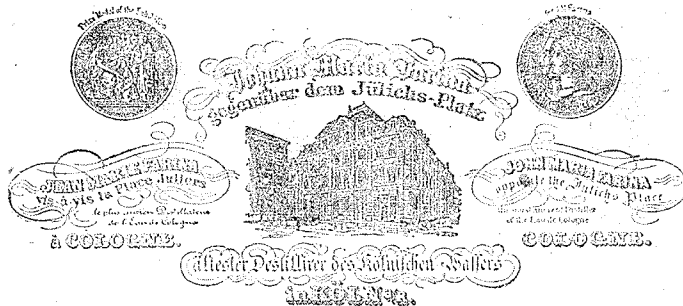 Prize Medal of the Exhibition
Johann Maria Farina
gegenüber dem Jülichs-Platz
JEAN MARIE FARINA
vis-à-vis la Place Juliers
le plus ancien Distillateur
de l'Eau de Cologne
à COLOGNE.
JOHN MARIA FARINA
opposite the Jülichs Place
the most ancient Distiller
of the Eau de Cologne
COLOGNE.
ältester Destillirer des Kölnischen Wassers
in KÖLN a/R.